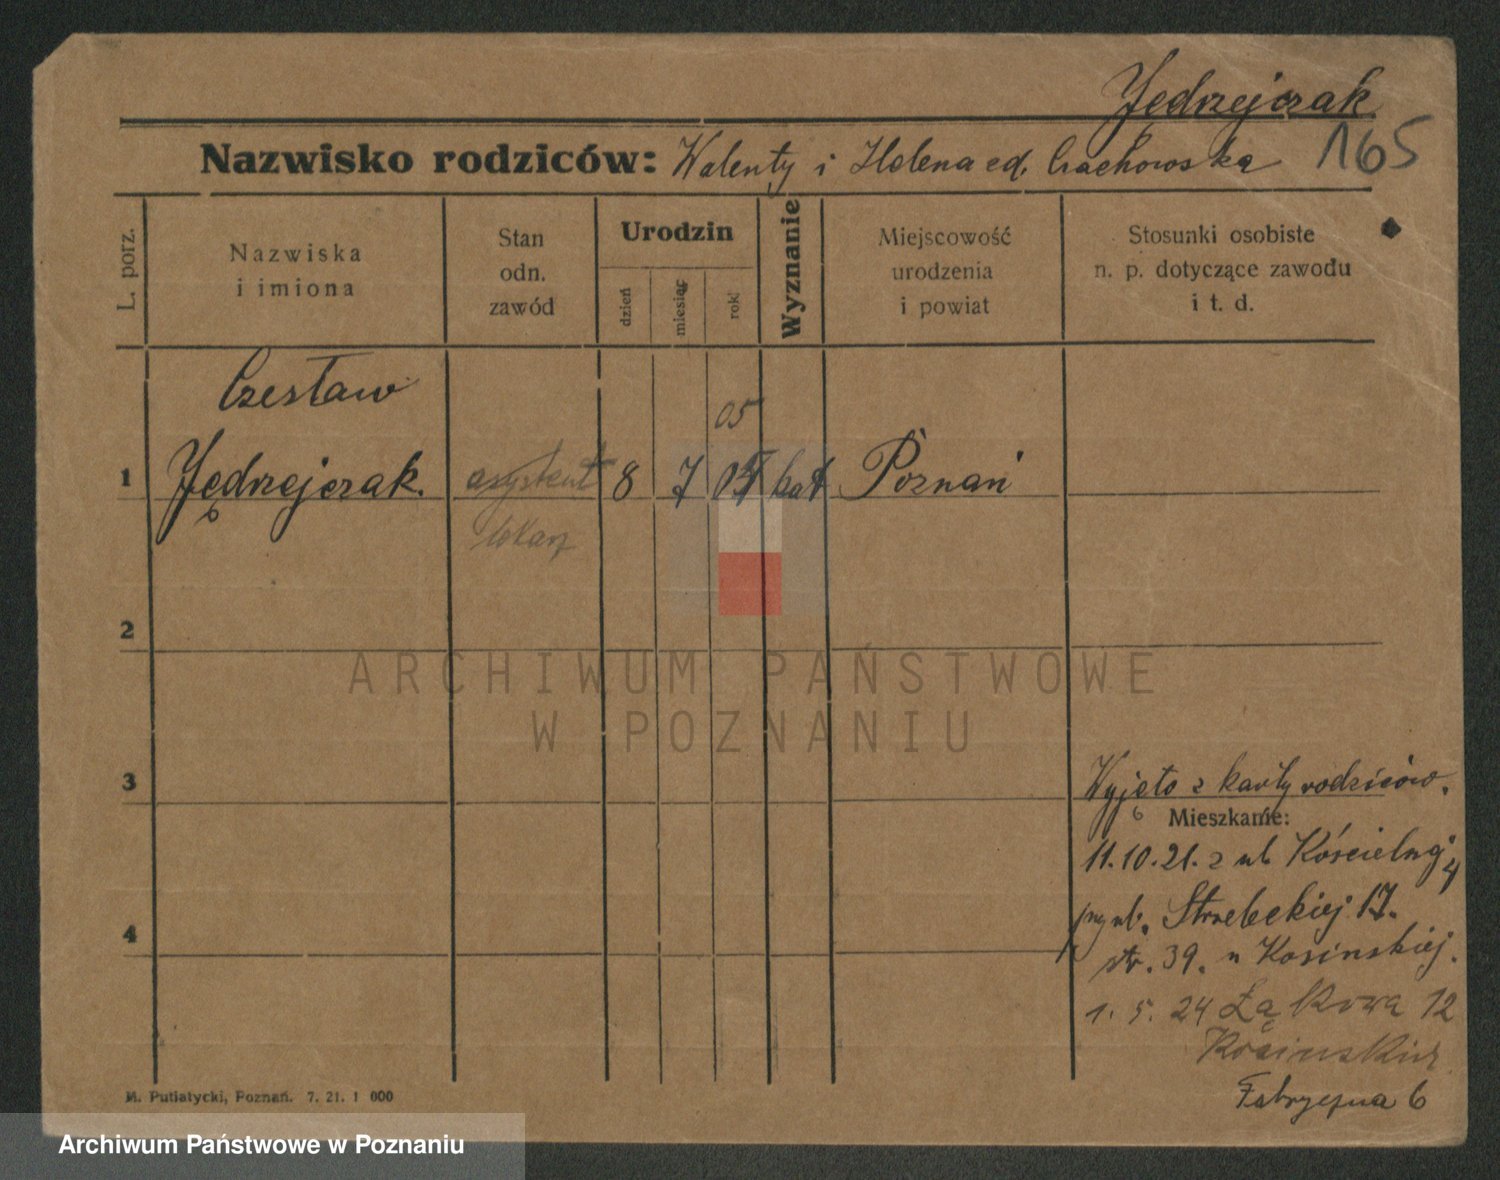 Jędrzejczak
165
Nazwisko rodziców: Walenty i Helena Czachowska
L. porz.
Nazwiska
i imiona
Stan
odn.
zawód
Urodzin
dzień
miesiąc
rok
Wyznanie
Miejscowość
urodzenia
i powiat
Stosunki osobiste
n. p. dotyczące zawodu
i t. d.
Czesław
05
1 Jędrzejczak. asystent 8 7 kat Poznań
2
ARCHIWUM PAŃSTWOWE
W POZNANIU
3
Wyjęto z karty rodziców.
Mieszkanie:
11.10.21. z ul. Kościelnej 4
ul. Strzeleckiej 17.
str. 39. Kosinskiej.
4
1. 5. 24 Łąkowa 12
Fabryczna 6
M. Putiatycki, Poznań. 7. 21. 1 000
Archiwum Państwowe w Poznaniu